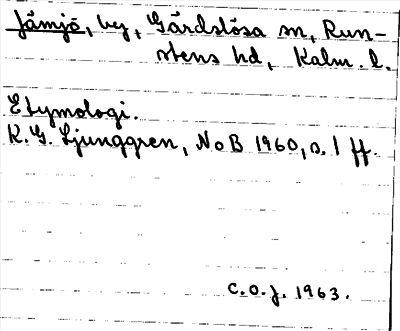 Jämjö, by, Gärdslösa sn, Run-
stens hd, Kalm. l.
Etymologi.
K.G. Ljunggren, NoB 1960, s. 1 ff.
C.O.J. 1963.